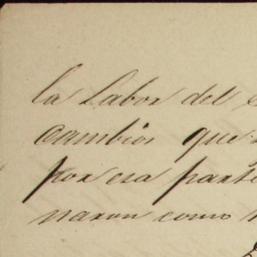 la Labor del
cambios que
por esa parte
naron como